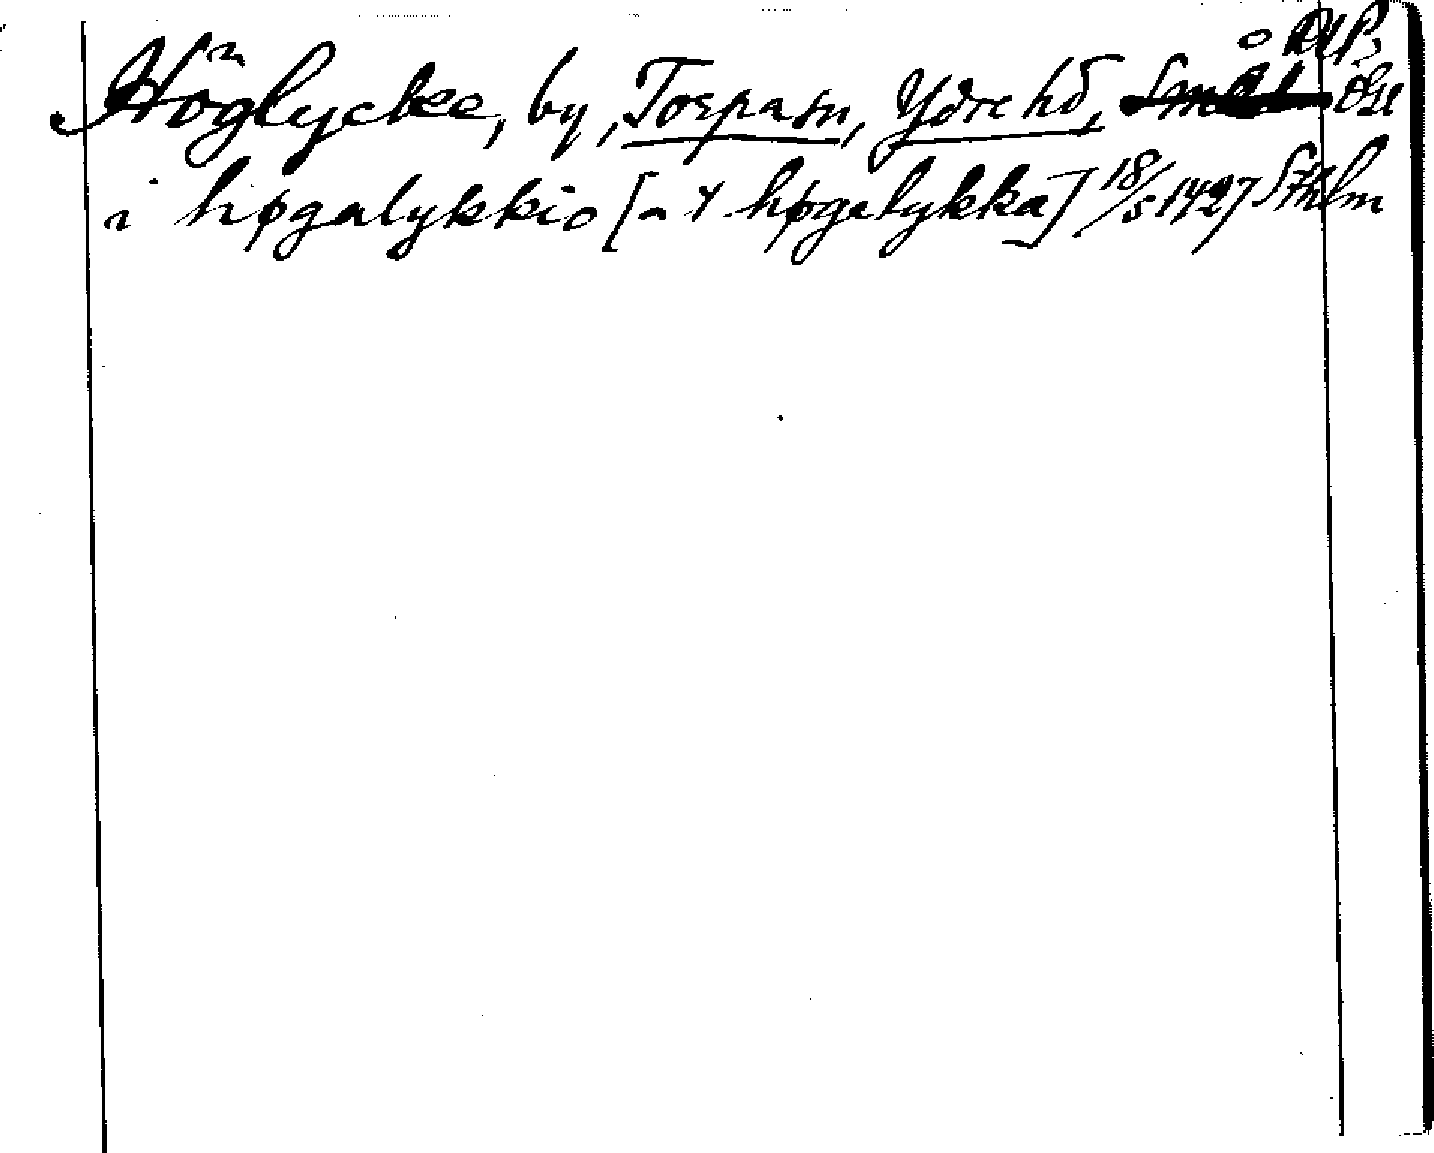 RAP.
Höglycke, by, Torpa sn, Ydre hd, Smål. Ög
i høgalykkio [ - y høgalykka] 18/5 1427 Sthlm